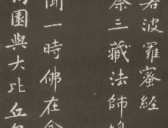 若波羅蜜經
秦三藏法師鳩
聞一時佛在舍
獨園與大比丘